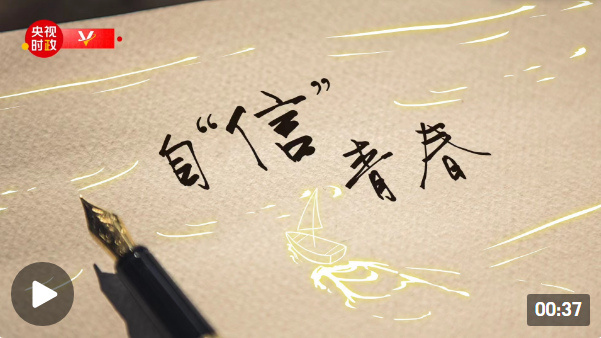 央视
时政
自“信”青春
00:37